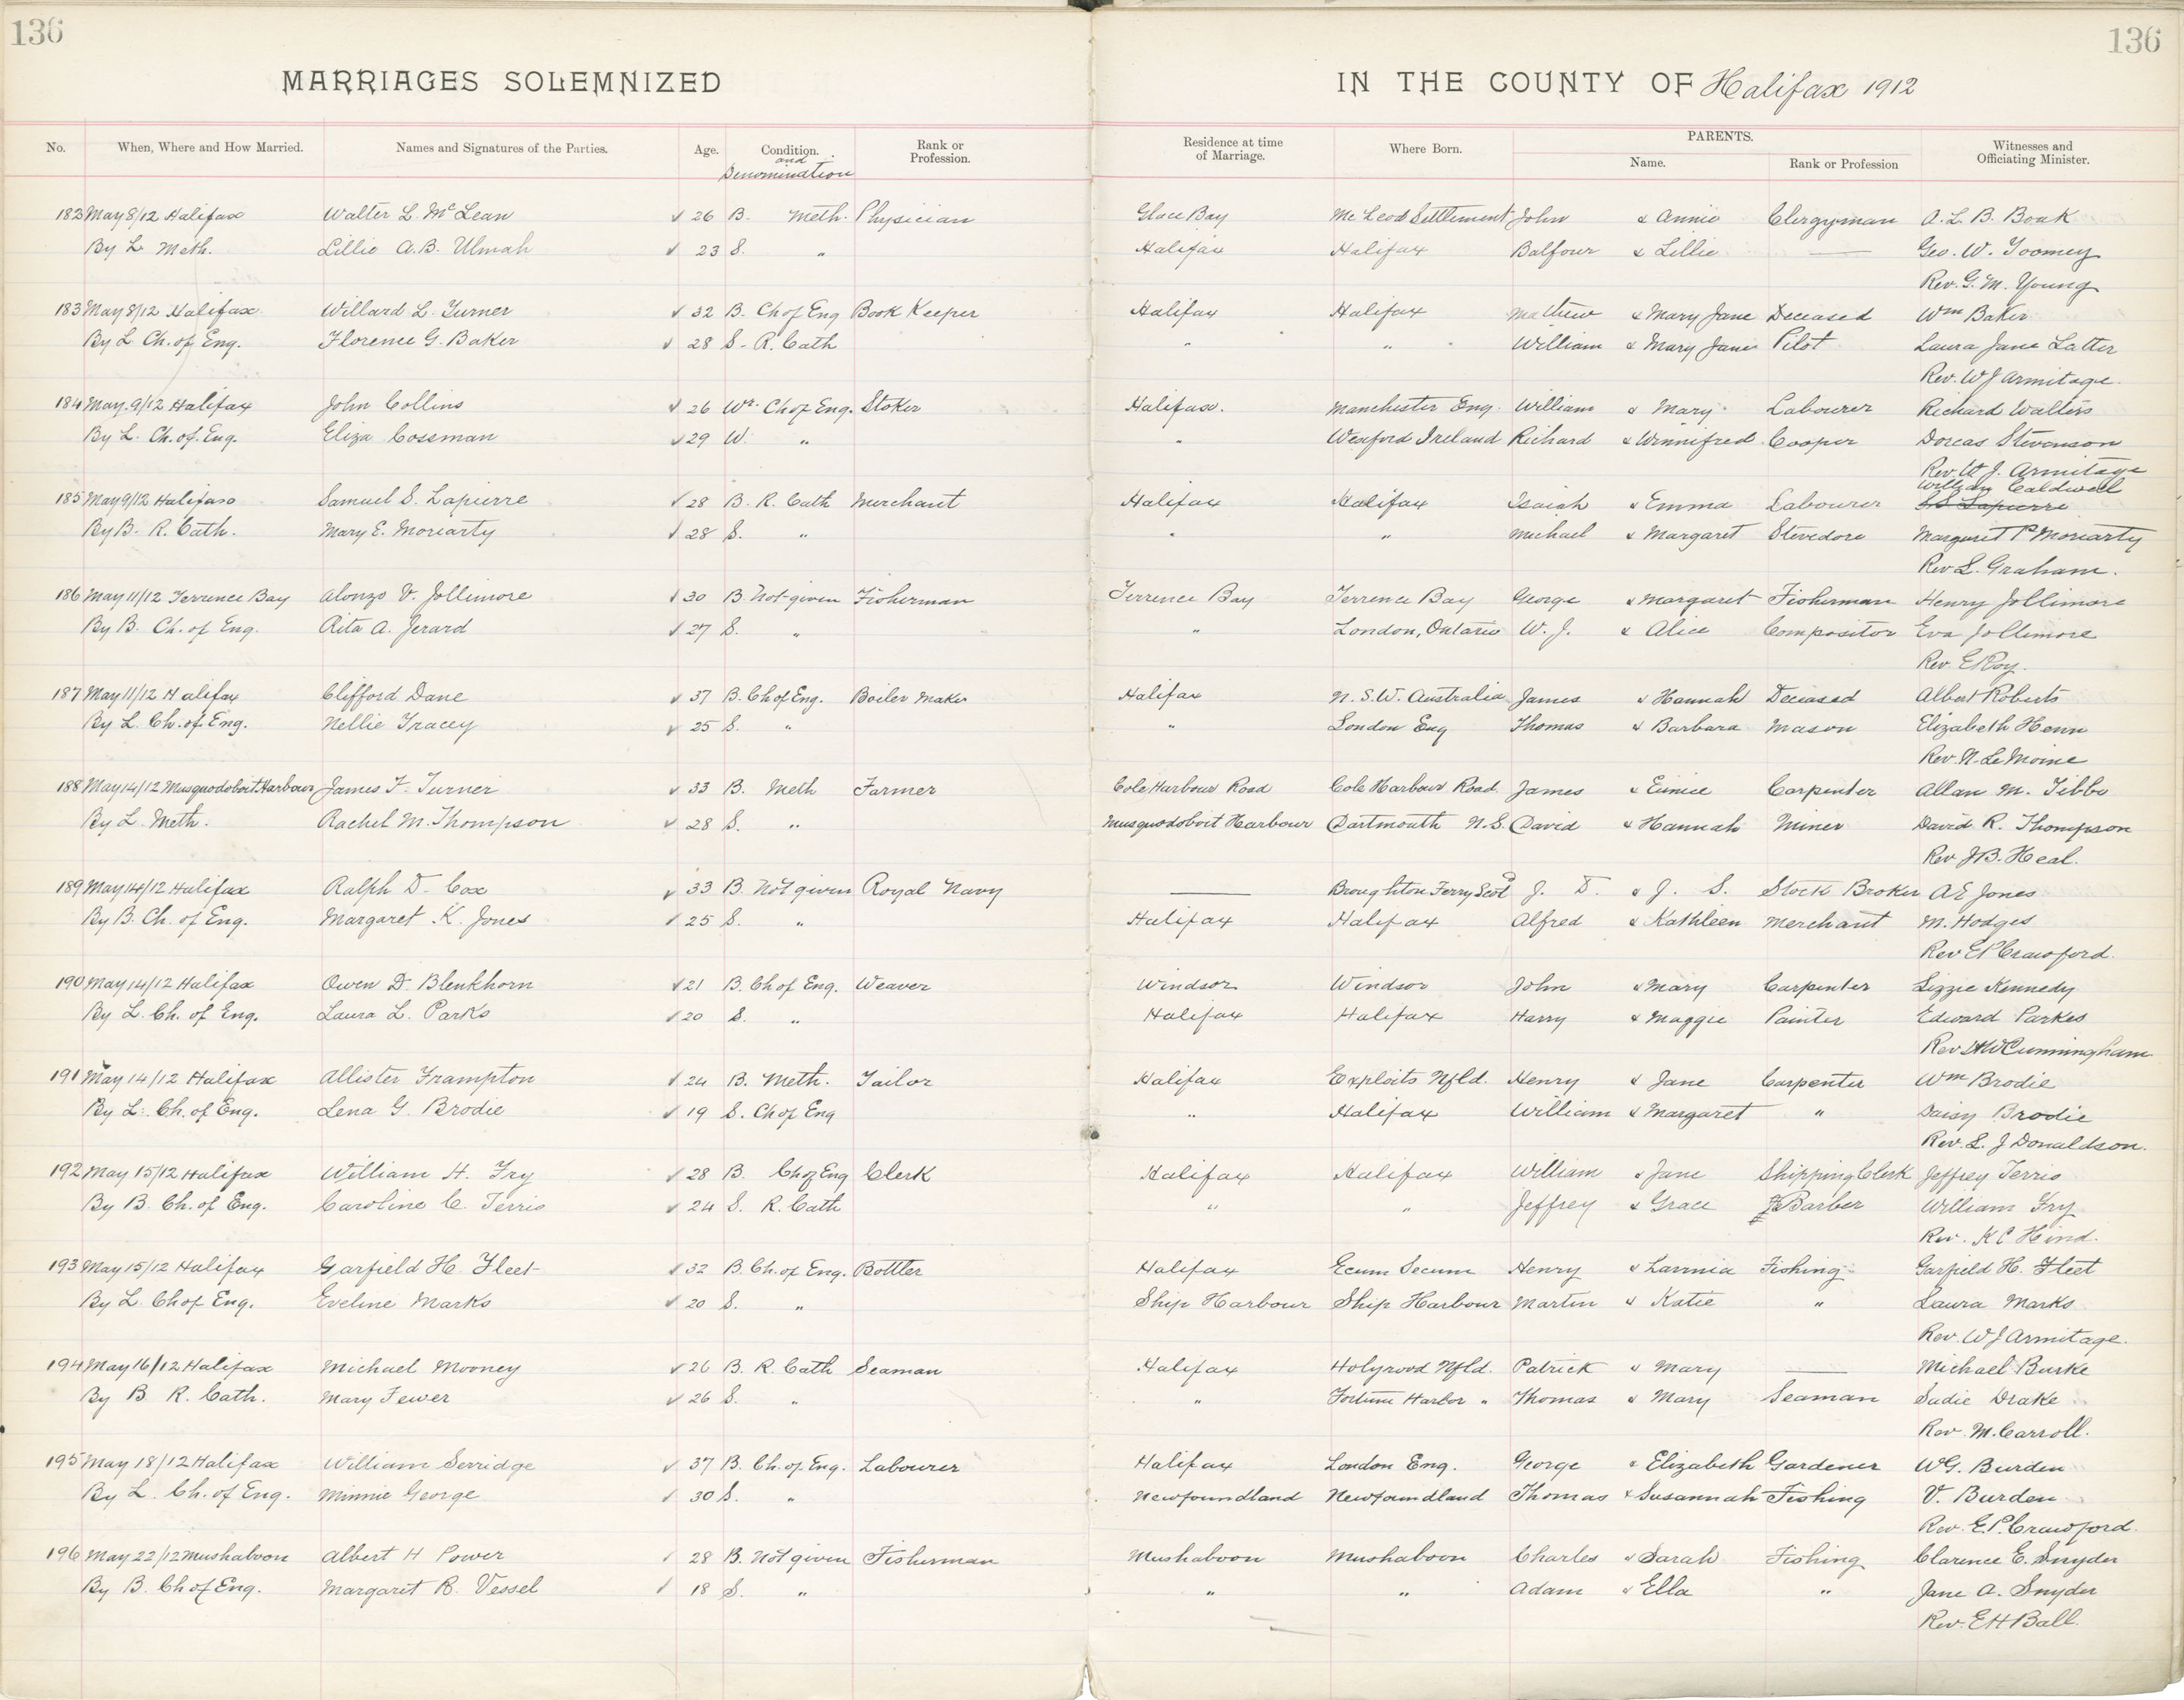 136
136
MARRIAGES SOLEMNIZED IN THE COUNTY OF Halifax 1912
No. When, Where and How Married. Names and Signatures of the Parties. Age. Condition. and Denomination Rank or Profession. Residence at time of Marriage. Where Born. PARENTS. Name. Rank or Profession Witnesses and Officiating Minister.
182 May 8/12 Halifax Walter L. McLean √ 26 B. Meth. Physician Glace Bay McLeod Settlement John & Annie Clergyman A. L. B. Bouk
By L Meth. Lillie A.B. Ulmah √ 23 S. " Halifax Halifax Balfour & Lillie — Geo. W. Toomey
Rev. G. M. Young
183 May 8/12 Halifax Willard L. Turner √ 32 B. Ch of Eng Book Keeper Halifax Halifax Mathew & Mary Jane Deceased Wm Baker
By L Ch. of Eng. Florence G. Baker √ 28 S- R. Cath " " William & Mary Jane Pilot Laura Jane Latter
Rev. W J Armitage.
184 May. 9/12 Halifax John Collins √ 26 Wr. Ch of Eng. Stoker Halifax. Manchester Eng. William & Mary Labourer Richard Walters
By L. Ch. of. Eng. Eliza Cossman √ 29 W. " " Wexford Ireland Richard & Winnifred Cooper Dorcas Stevenson
Rev. W. J. Armitage
William Caldwell
185 May 9/12 Halifax Samuel S. Lapierre √ 28 B. R. Cath Merchant Halifax Halifax Isaiah & Emma Labourer S S Lapierre
By B. R. Cath. Mary E. Moriarty √ 28 S. " " " Michael & Margaret Stevedore Margaret P Moriarty
Rev L. Graham.
186 May 11/12 Terrence Bay Alonzo V. Jollimore √ 30 B. Not given Fisherman Terrence Bay Terrence Bay George & Margaret Fisherman Henry Jollimore
By B. Ch. of Eng. Rita A. Jerard √ 27 S. " " London, Ontario W. J. & Alice Compositor Eva Jollimore
Rev. E Roy.
187 May 11/12 Halifax Clifford Dane √ 37 B. Ch of Eng. Boiler Maker Halifax N. S.W. Australia James & Hannah Deceased Albert Roberts
By L. Ch. of Eng. Nellie Tracey √ 25 S. " " London Eng Thomas & Barbara Mason Elizabeth Henn
Rev. N. LeMoine
188 May 14/12 Musquodoboit Harbour James F. Turner √ 33 B. Meth Farmer Cole Harbour Road Cole Harbour Road James & Eunice Carpenter Allan M. Tibbo
By L. Meth. Rachel M. Thompson √ 28 S. " Musquodoboit Harbour Dartmouth N.S. David & Hannah Miner David R. Thompson
Rev J.B. Heal.
189 May 14/12 Halifax Ralph D. Cox √ 33 B. Not given Royal Navy — Broughton Ferry Scotd J. D. & J. S. Stock Broker A E Jones
By B. Ch. of Eng. Margaret K. Jones √ 25 S. " Halifax Halifax Alfred & Kathleen Merchant M. Hodges
Rev E P Crawford.
190 May 14/12 Halifax Owen D. Blenkhorn √ 21 B. Ch of Eng. Weaver Windsor Windsor John & Mary Carpenter Lizzie Kennedy
By L. Ch. of Eng. Laura L. Parks √ 20 S. " Halifax Halifax Harry & Maggie Painter Edward Parkes
Rev H W Cunningham
191 May 14/12 Halifax Allister Frampton √ 24 B. Meth. Tailor Halifax Exploits Nfld. Henry & Jane Carpenter Wm Brodie
By L. Ch. of Eng. Lena G. Brodie √ 19 S. Ch of Eng " Halifax William & Margaret " Daisy Brodie
Rev. L. J Donaldson.
192 May 15/12 Halifax William H. Fry √ 28 B. Ch of Eng Clerk Halifax Halifax William & Jane Shipping Clerk Jeffrey Terris
By B Ch. of Eng. Caroline C. Terris √ 24 S. R. Cath " " Jeffrey & Grace Barber William Fry
Rev. K C Hind.
193 May 15/12 Halifax Garfield H. Fleet √ 32 B. Ch. of Eng. Bottler Halifax Ecum Secum Henry & Lavinia Fishing Garfield H. Fleet
By L. Ch of Eng. Eveline Marks √ 20 S. " Ship Harbour Ship Harbour Martin & Katie " Laura Marks
Rev. W J Armitage.
194 May 16/12 Halifax Michael Mooney √ 26 B. R. Cath Seaman Halifax Holyrood Nfld. Patrick & Mary — Michael Burke
By B R. Cath. Mary Fewer √ 26 S. " " Fortune Harbor " Thomas & Mary Seaman Sadie Drake
Rev. M. Carroll.
195 May 18/12 Halifax William Serridge √ 37 B. Ch. of Eng. Labourer Halifax London Eng. George & Elizabeth Gardener W G. Burden
By L. Ch. of Eng. Minnie George √ 30 S. " Newfoundland Newfoundland Thomas & Susannah Fishing V. Burden
Rev. E. P. Crawford.
196 May 22/12 Mushaboon Albert H Power √ 28 B. Not given Fisherman Mushaboon Mushaboon Charles & Sarah Fishing Clarence E. Snyder
By B. Ch of Eng. Margaret R. Vessel √ 18 S. " " " Adam & Ella " Jane A. Snyder
Rev. E H Ball.